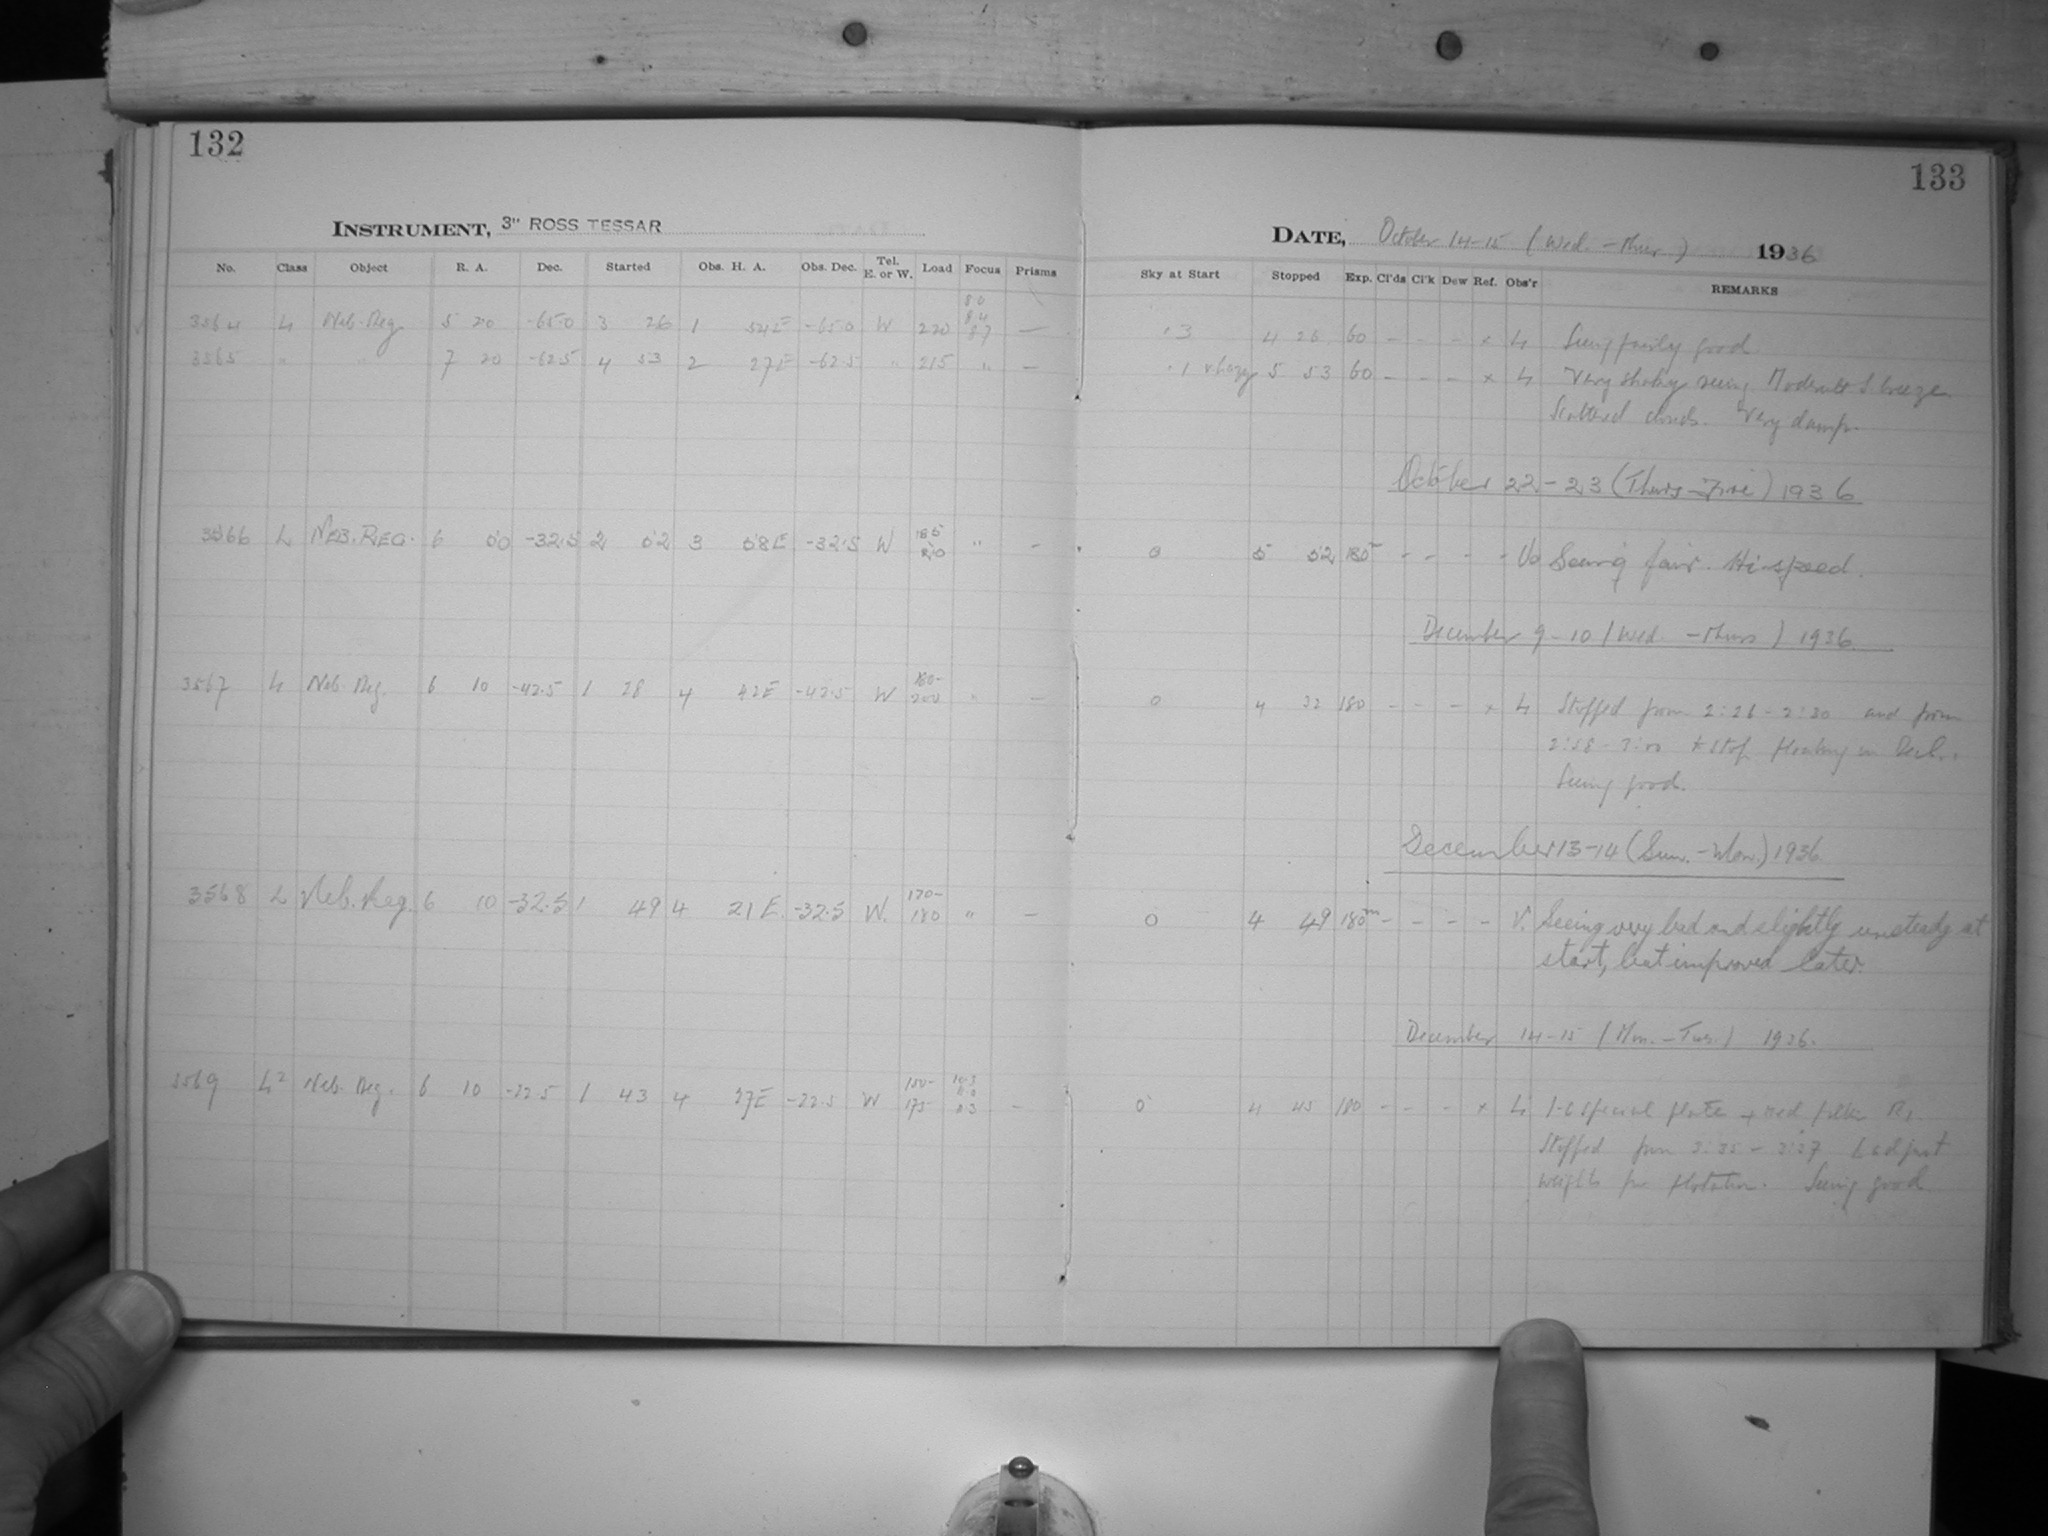 132
INSTRUMENT, 3" ROSS TESSAR
No. Class Object R. A. Dec. Started Obs. H. A. Obs. Dec. Tel. E. or W. Load Focus Prisms
3564 L Neb. Reg. 5 20 -65.0 3 26 1 54E -65.0 W 220 80 84 87 —
3565 " " 7 20 -62.5 4 53 2 27E -62.5 " 215 " —
3566 L NEB. REG. 6 00 -32.5 2 52 3 58E -32.5 W 185 " —
3567 L Neb. Reg. 6 10 -42.5 1 28 4 42E -42.5 W 180- 200 " —
3568 L Neb. Reg. 6 10 -32.5 1 49 4 21E. -32.5 W. 170- 180 " —
3569 L2 Neb. Reg. 6 10 -22.5 1 43 4 27E -22.5 W 150- 175 —
133
DATE, October 14-15 (Wed. - Thur.) 1936
Sky at Start Stopped Exp. Cl'ds Cl'k Dew Ref. Obs'r REMARKS
.3 4 26 60 - - - x L Seeing fairly good
.1 v hazy 5 53 60 - - - x L Very shaky seeing Moderate S breeze
Scattered clouds. Very damp.
October 22-23 (Thurs-Fri) 1936
0 5 52 180 - - - - Seeing fair. Hi-speed.
December 9-10 (Wed. - Thurs) 1936
0 4 32 180 - - - x L Stopped from 2:26-2:30 and from
2:58-3:00 to stop floating in Decl..
Seeing good.
December 13-14 (Sun. - Mon.) 1936
0 4 49 180m - - - - V. Seeing very bad and slightly unsteady at
start, but improved later.
December 14-15 (Mon. - Tues.) 1936.
0 4 45 180 - - - x L special plate + red filter
Stopped from 3:35-3:37 to adjust
weights for flotation. Seeing good